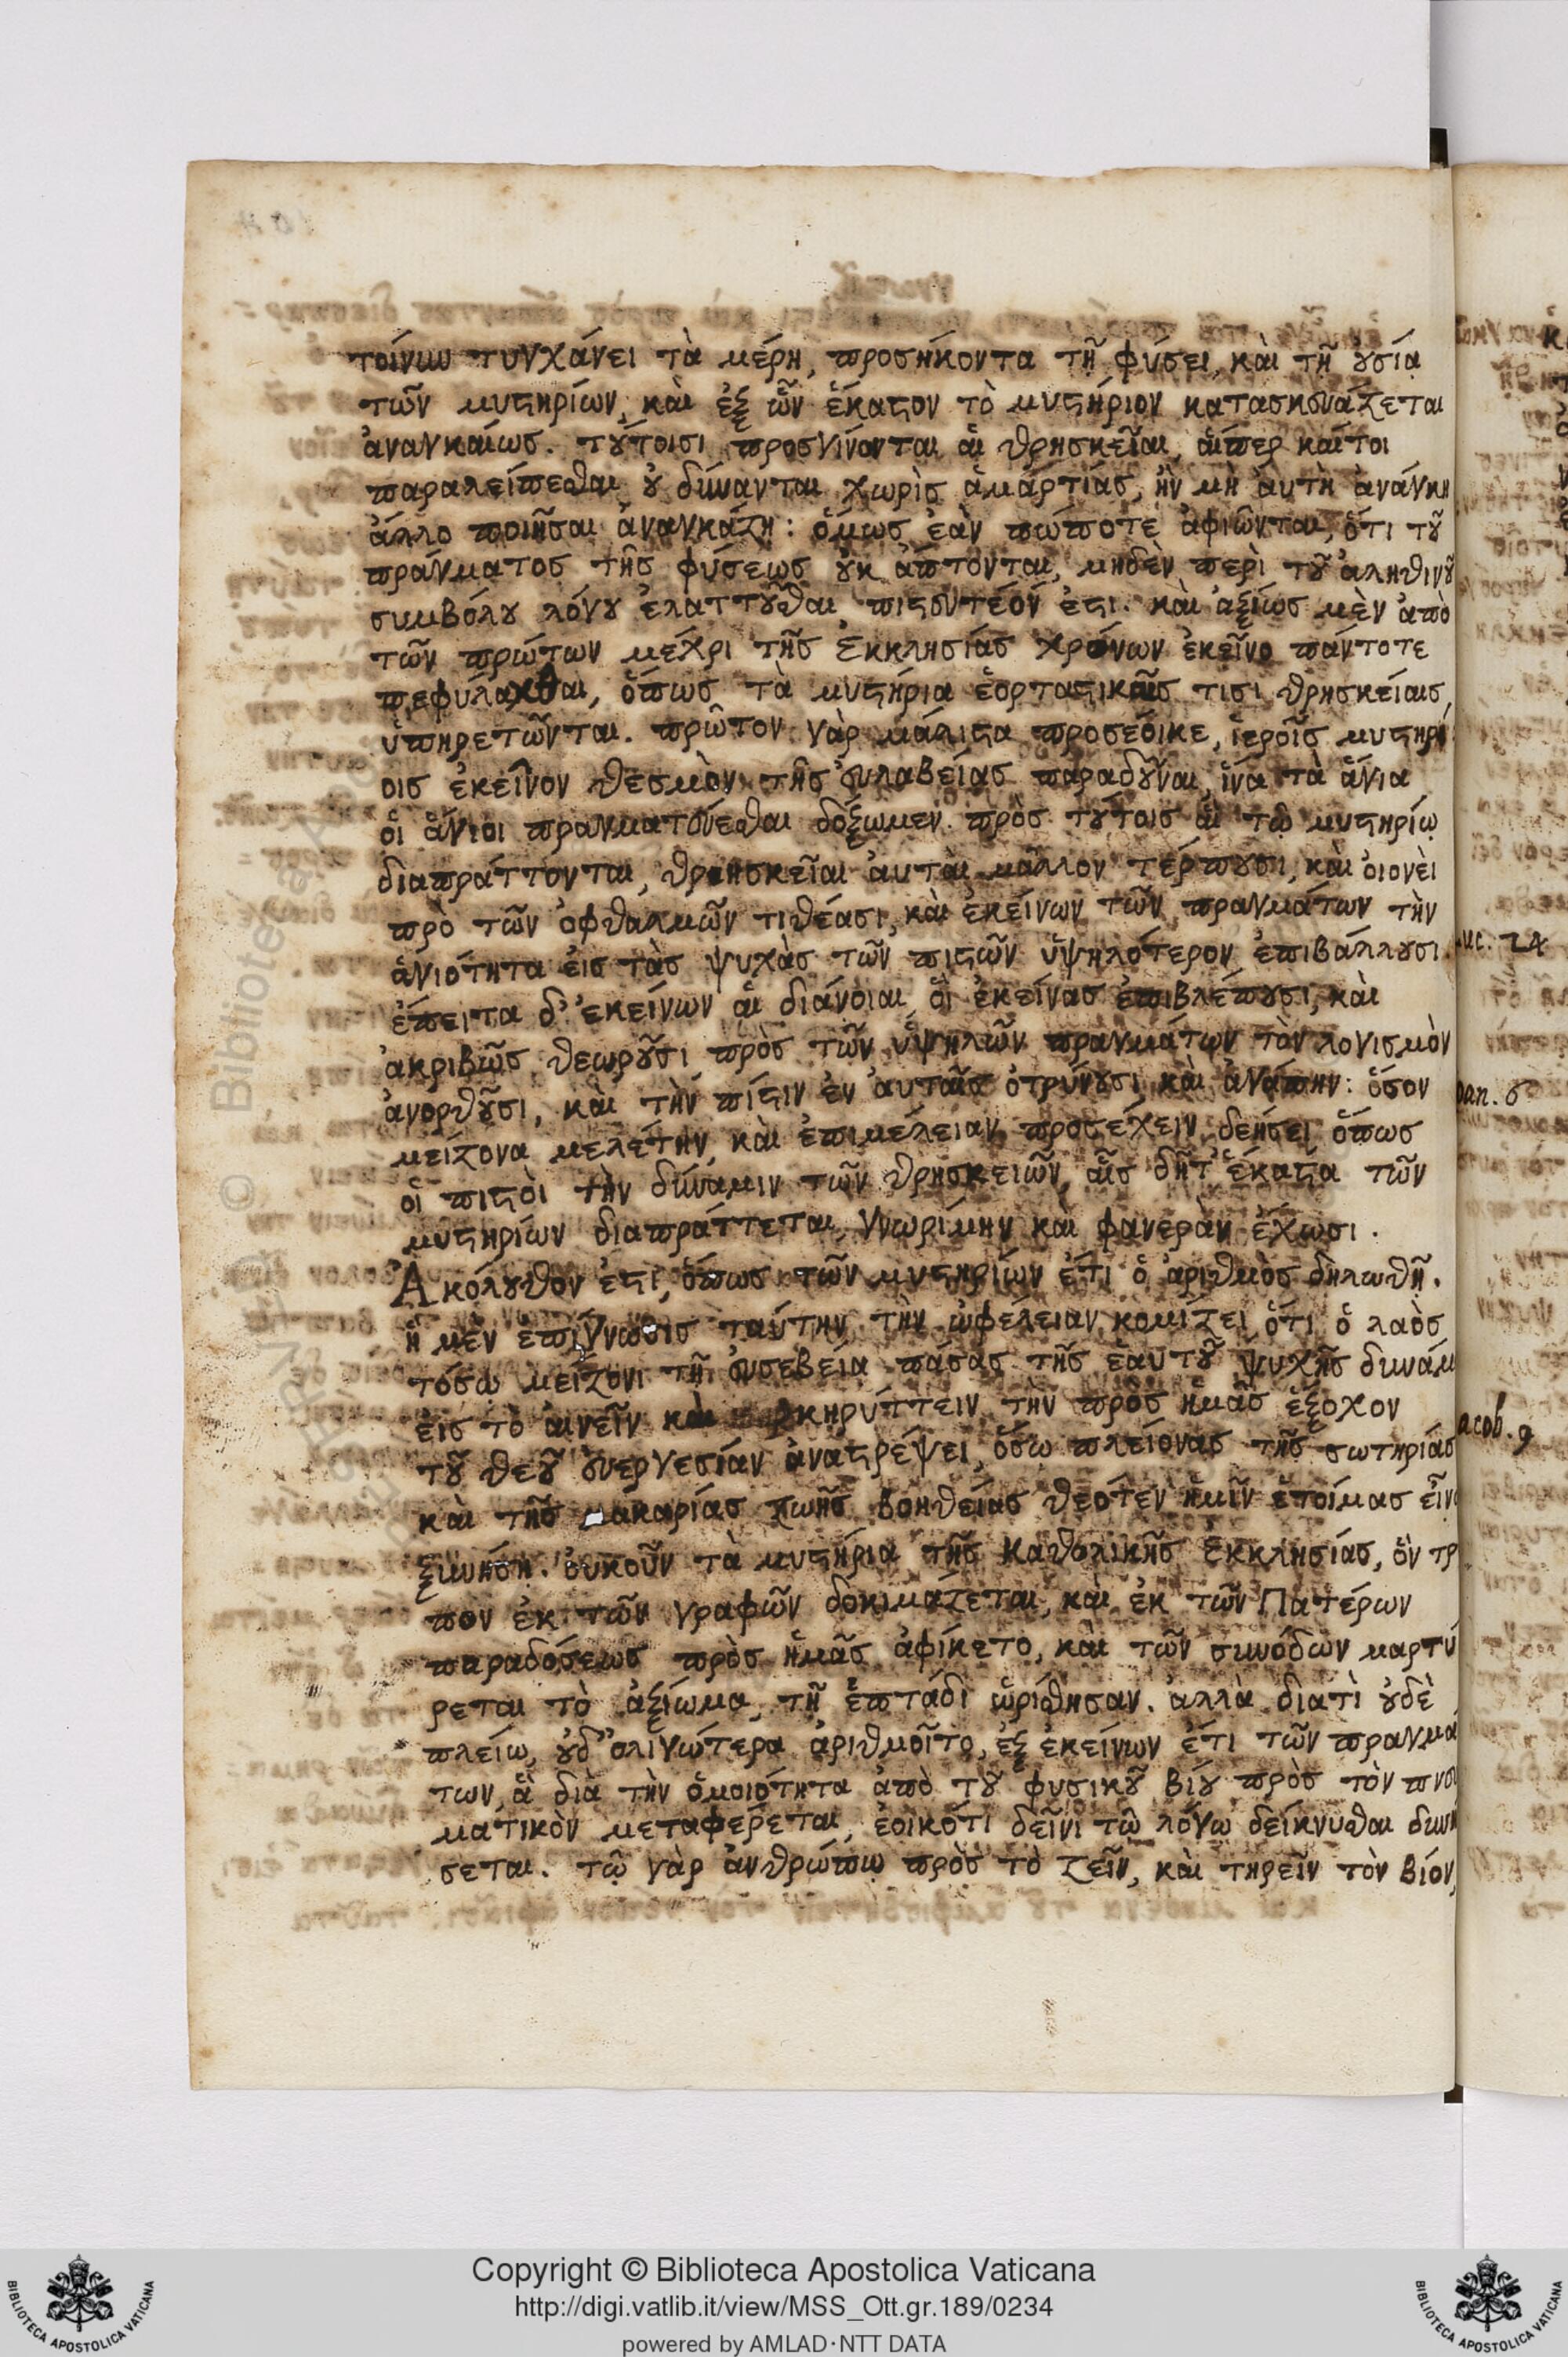 τοίνυν τυγχάνει τὰ μέρη, προσήκοντα τῇ φύσει, καὶ τῇ ȣσίᾳ
τῶν μυϛηρίων, καὶ ἐξ ὧν ἕκαϛον τὸ μυϛήριον κατασκευάζεται
ἀναγκαίως. τȣ́τοισι προσγίνονται αἱ θρησκεῖαι, αἵπερ καίτοι
παραλείπεσθαι ȣ δύνανται χωρὶς ἁμάρτίας, ἢν μὴ ἀυτὴ ἀνάγκη
ἄλλο ποιῆσαι ἀναγκάζῃ: ὅμως ἐὰν πώποτε ἀφιῶνται, ὅτι τȣ͂
πράγματος τῆς φύσεως ȣκ ἅπτονται, μηδὲν περὶ τȣ͂ ἀληθινȣ͂
συμβόλȣ λόγȣ ἐλαττȣ͂σθαι πιϛευτέον ἐϛι. καὶ ἀξίως μὲν ἀπὸ
τῶν πρώτων μέχρι τῆς Ἐκκλησίας χρόνων ἐκεῖνο πάντοτε
πεφύλαχθαι, ὅπως τὰ μυϛήρια ἑορταϛικαῖς τισι θρησκείαις,
ὑπηρετῶνται. πρῶτον γὰρ μάλιϛα προσεόικε, ἱεροῖς μυϛηρί
οις ἐκεῖνον θεσμὸν τῆς ἐυλαβείας παραδȣ͂ναι, ἵνα τὰ ἅγια
οἱ ἅγιοι πραγματεύεσθαι δόξωμεν. πρὸς τȣ́τοις αἱ τῷ μυϛηρίῳ
διαπράττονται, θρησκεῖαι ἀυτὰι μᾶλλον τέρπȣσι, καὶ ὁιονὲι
πρὸ τῶν ὀφθαλμῶν τιθέασι, καὶ ἐκείνων τῶν πραγμάτων τὴν
ἁγιότητα ἐις τὰς ψυχὰς τῶν πιϛῶν ὑψηλότερον ἐπιβάλλȣσι.
ἔπειτα δ' ἐκείνων αἱ διάνοιαι, οἳ ἐκείνας ἐπιβλέπȣσι, καὶ
ἀκριβῶς θεωρȣ͂σι πρὸς τῶν ὑψηλῶν πραγμάτων τὸν λογισμὸν
ἀνορθȣ͂σι, καὶ τὴν πίϛιν ἐν ἀυταῖς ὀτρύνȣσι καὶ ἀγάπην: ὅσον
μείζονα μελέτην, καὶ ἐπιμέλειαν προσέχειν δεήσει ὅπως
οἱ πιϛοὶ τὴν δύναμιν τῶν θρησκειῶν, αἷς δῆτ' ἕκαϛα τῶν
μυϛηρίων διαπράττεται, γνωρίμην καὶ φανερὰν ἔχωσι.
Ἀκόλȣθον ἐϛι, ὅπως τῶν μυϛηρίων ἔτι ὁ ἀριθμὸς δηλωθῇ.
ἡ μὲν ἐπίγνωσις ταύτην τὴν ὠφέλειαν κομίζει, ὅτι ὁ λαὸς
τόσῳ μείζονι τῇ ἐυσεβείᾳ πάσας τῆς ἑαυτȣ͂ ψυχῆς δυνάμ
ἐις τὸ ἀινεῖν καὶ κηρύττειν τὴν πρὸς ἡμᾶς ἔξοχον
τȣ͂ θεȣ͂ ἐυεργεσίαν ἀναϛρέψει, ὅσῳ πλείονας τῆς σωτηρίας
καὶ τῆς μακαρίας ζωῆς βοηθείας θεότεν ἡμῖν ἑτοίμας εἶν
ξυνήσῃ. ὀυκοῦν τὰ μυϛήρια τῆς Καθολικῆς Ἐκκλησίας, ὃν τρ
πον ἐκ τῶν γραφῶν δοκιμάζεται, καὶ ἐκ τῶν Πατέρων
παραδόσεως πρὸς ἡμᾶς ἀφίκετο, καὶ τῶν συνόδων μαρτύ
ρεται τὸ ἀξίωμα, τῇ ἑπτάδι ὡρίσθησαν. ἀλλὰ διατὶ ȣδὲ
πλείω, ȣδ' ὀλιγώτερα ἀριθμοῖτο, ἐξ ἐκείνων ἔτι τῶν πραγμά
των, ἃ διὰ τὴν ὁμοιότητα ἀπὸ τȣ͂ φυσικȣ͂ βίȣ πρὸς τὸν πνευ
ματικὸν μεταφέρεται, ἐοικότι δεῖνι τῷ λόγῳ δείκνυσθαι δυνή
σεται. τῷ γὰρ ἀνθρώπῳ πρὸς τὸ ζεῖν, καὶ τηρεῖν τὸν βίον,
uc. 24
Dan. 6
acob. 9
Copyright © Biblioteca Apostolica Vaticana
http://digi.vatlib.it/view/MSS_Ott.gr.189/0234
powered by AMLAD·NTT DATA
BIBLIOTECA APOSTOLICA VATICANA
BIBLIOTECA APOSTOLICA VATICANA